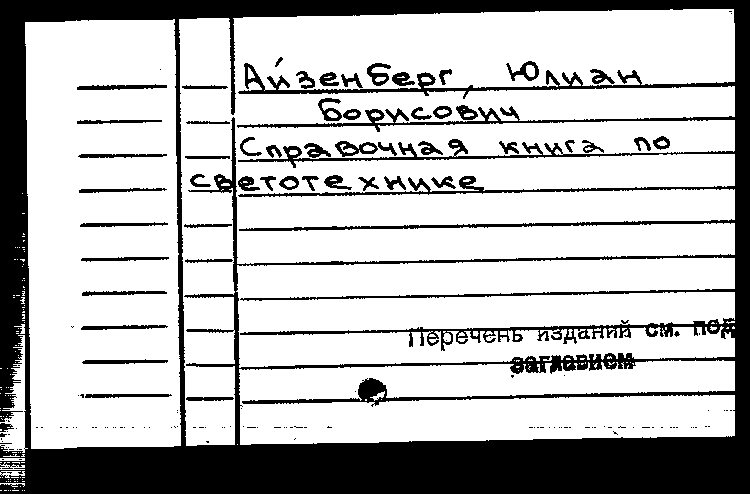 Айзенберг, Юлиан
Борисович
Справочная книга по
светотехнике
Перечень изданий см. под
заглавием